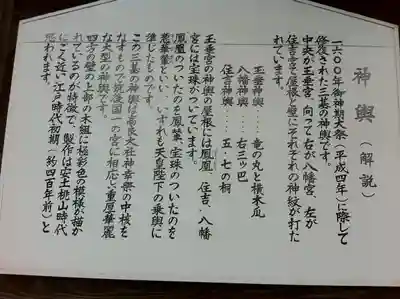 神輿（解説）
一六〇〇年御神期大祭（平成四年）に際して
修復された三基の神輿です。
中央が玉垂宮、向って右が八幡宮、左が
住吉宮で屋根と壁にそれぞれの神紋が打た
れています。
玉垂神輿……竜の丸と横木瓜
八幡神輿……右三ッ巴
住吉神輿……五・七の桐
玉垂宮の神輿の屋根には鳳凰、住吉、八幡
宮には宝珠がついています。
鳳凰のついたのを鳳輦、宝珠のついたのを
葱華輦といい、いずれも天皇陛下の乗輿に
準じたものです。
この三基の神輿は高良大社神幸祭の中核を
なすもので筑後国一の宮に相応しい重厚華麗
な大型の神輿です。
四方の壁の上部の木組には極彩色の模様が描か
れているのが特徴で、製作は安土桃山時代
にごく近い江戸時代初期（約四百年前）と
思われます。